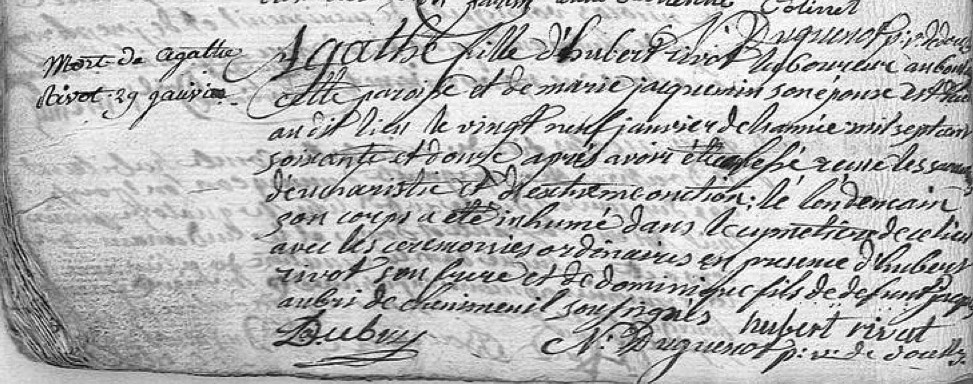 Colinet
N. Duguenot p. v. de doulz
Mort de agathe
Rivot 29 janvier
Agathe fille d'hubert rivot laboureur au bout
cette paroisse et de marie jacquemin son épouse est
audit lieu le vingt neuf janvier de l'année mil sept cent
soixante et douze après avoir été confessé reçue les
d'eucharistie et d'extreme onction; le lendemain
son corps a été inhumé dans le cymetiere de ce lieu
avec les ceremonies ordinaires en presence d'hubert
rivot son frere et de dominique fils de defunt jacq
aubri de chenimenil soussignés
hubert rivot
Dubry
N. Duguenot p. v. de doulz.